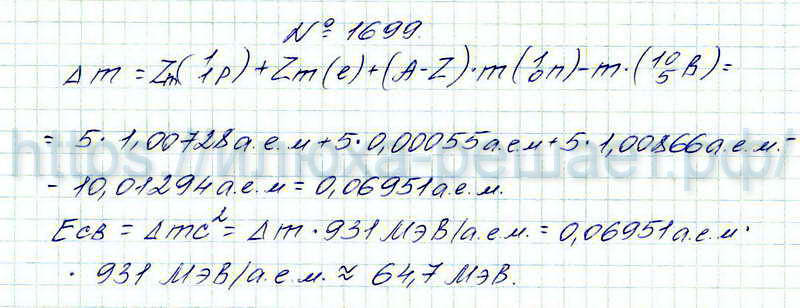 № 1699.
Δm = Zm(¹₁p) + Zm(e) + (A-Z)·m(¹₀n) - m·(¹⁰₅B) =
= 5·1,00728 а.е.м + 5·0,00055 а.е.м + 5·1,00866 а.е.м. -
- 10,01294 а.е.м = 0,06951 а.е.м.
Eсв = Δmc² = Δm·931 МэВ/а.е.м. = 0,06951 а.е.м·
· 931 МэВ/а.е.м. ≈ 64,7 МэВ.